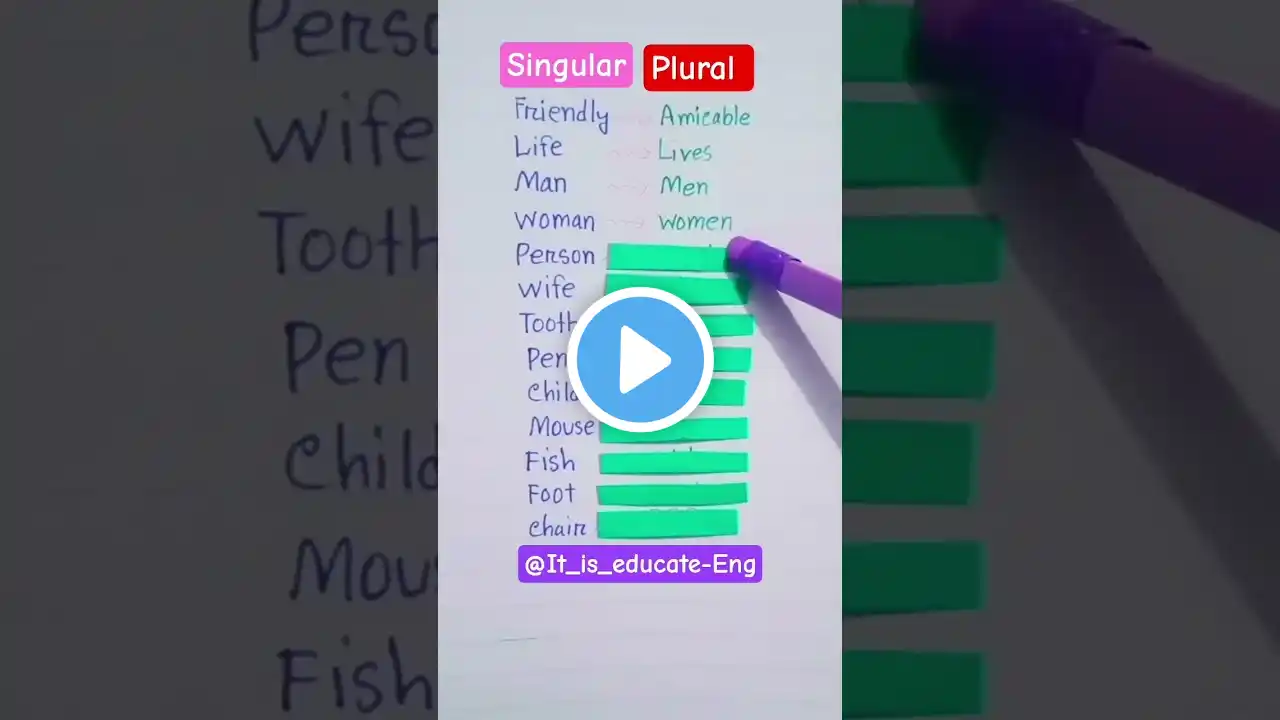 Singular Plural
Friendly Amicable
Life Lives
Man Men
Woman women
Person
Wife
Tooth
Pen
Child
Mouse
Fish
Foot
chair
@It_is_educate-Eng